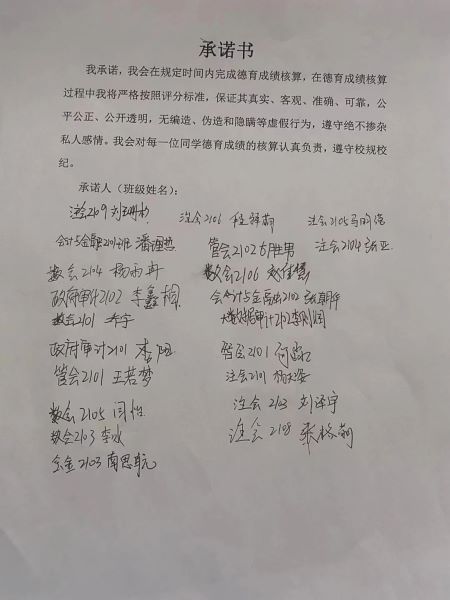 承诺书
我承诺，我会在规定时间内完成德育成绩核算，在德育成绩核算
过程中我将严格按照评分标准，保证其真实、客观、准确、可靠，公
平公正、公开透明，无编造、伪造和隐瞒等虚假行为，遵守绝不掺杂
私人感情。我会对每一位同学德育成绩的核算认真负责，遵守校规校
纪。
承诺人（班级姓名）：
注会2109 注会2106 注会2105
会计与金融2101班 管会2102 胡胜男 注会2104 张亚
数会2104 杨雨冉 数会2106 赵佳
政府审计2102 李鑫桐 会计与金融2102
数会2101 乔宇 2102
政府审计2101 李阳 管会2101 何
管会2101 王若梦 注会2101
数会2105 闫怡 注会2103 刘译宇
数会2103 李冰 注会2108
会金2103 南思航